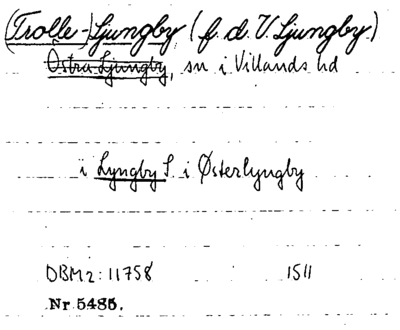 (Trolle-)Ljungby (f. d. V. Ljungby)
Östra Ljungby, sn i Villands hd
i Lyngby S. i Østerlyngby
DBM2: 11758 1511
Nr 5485.